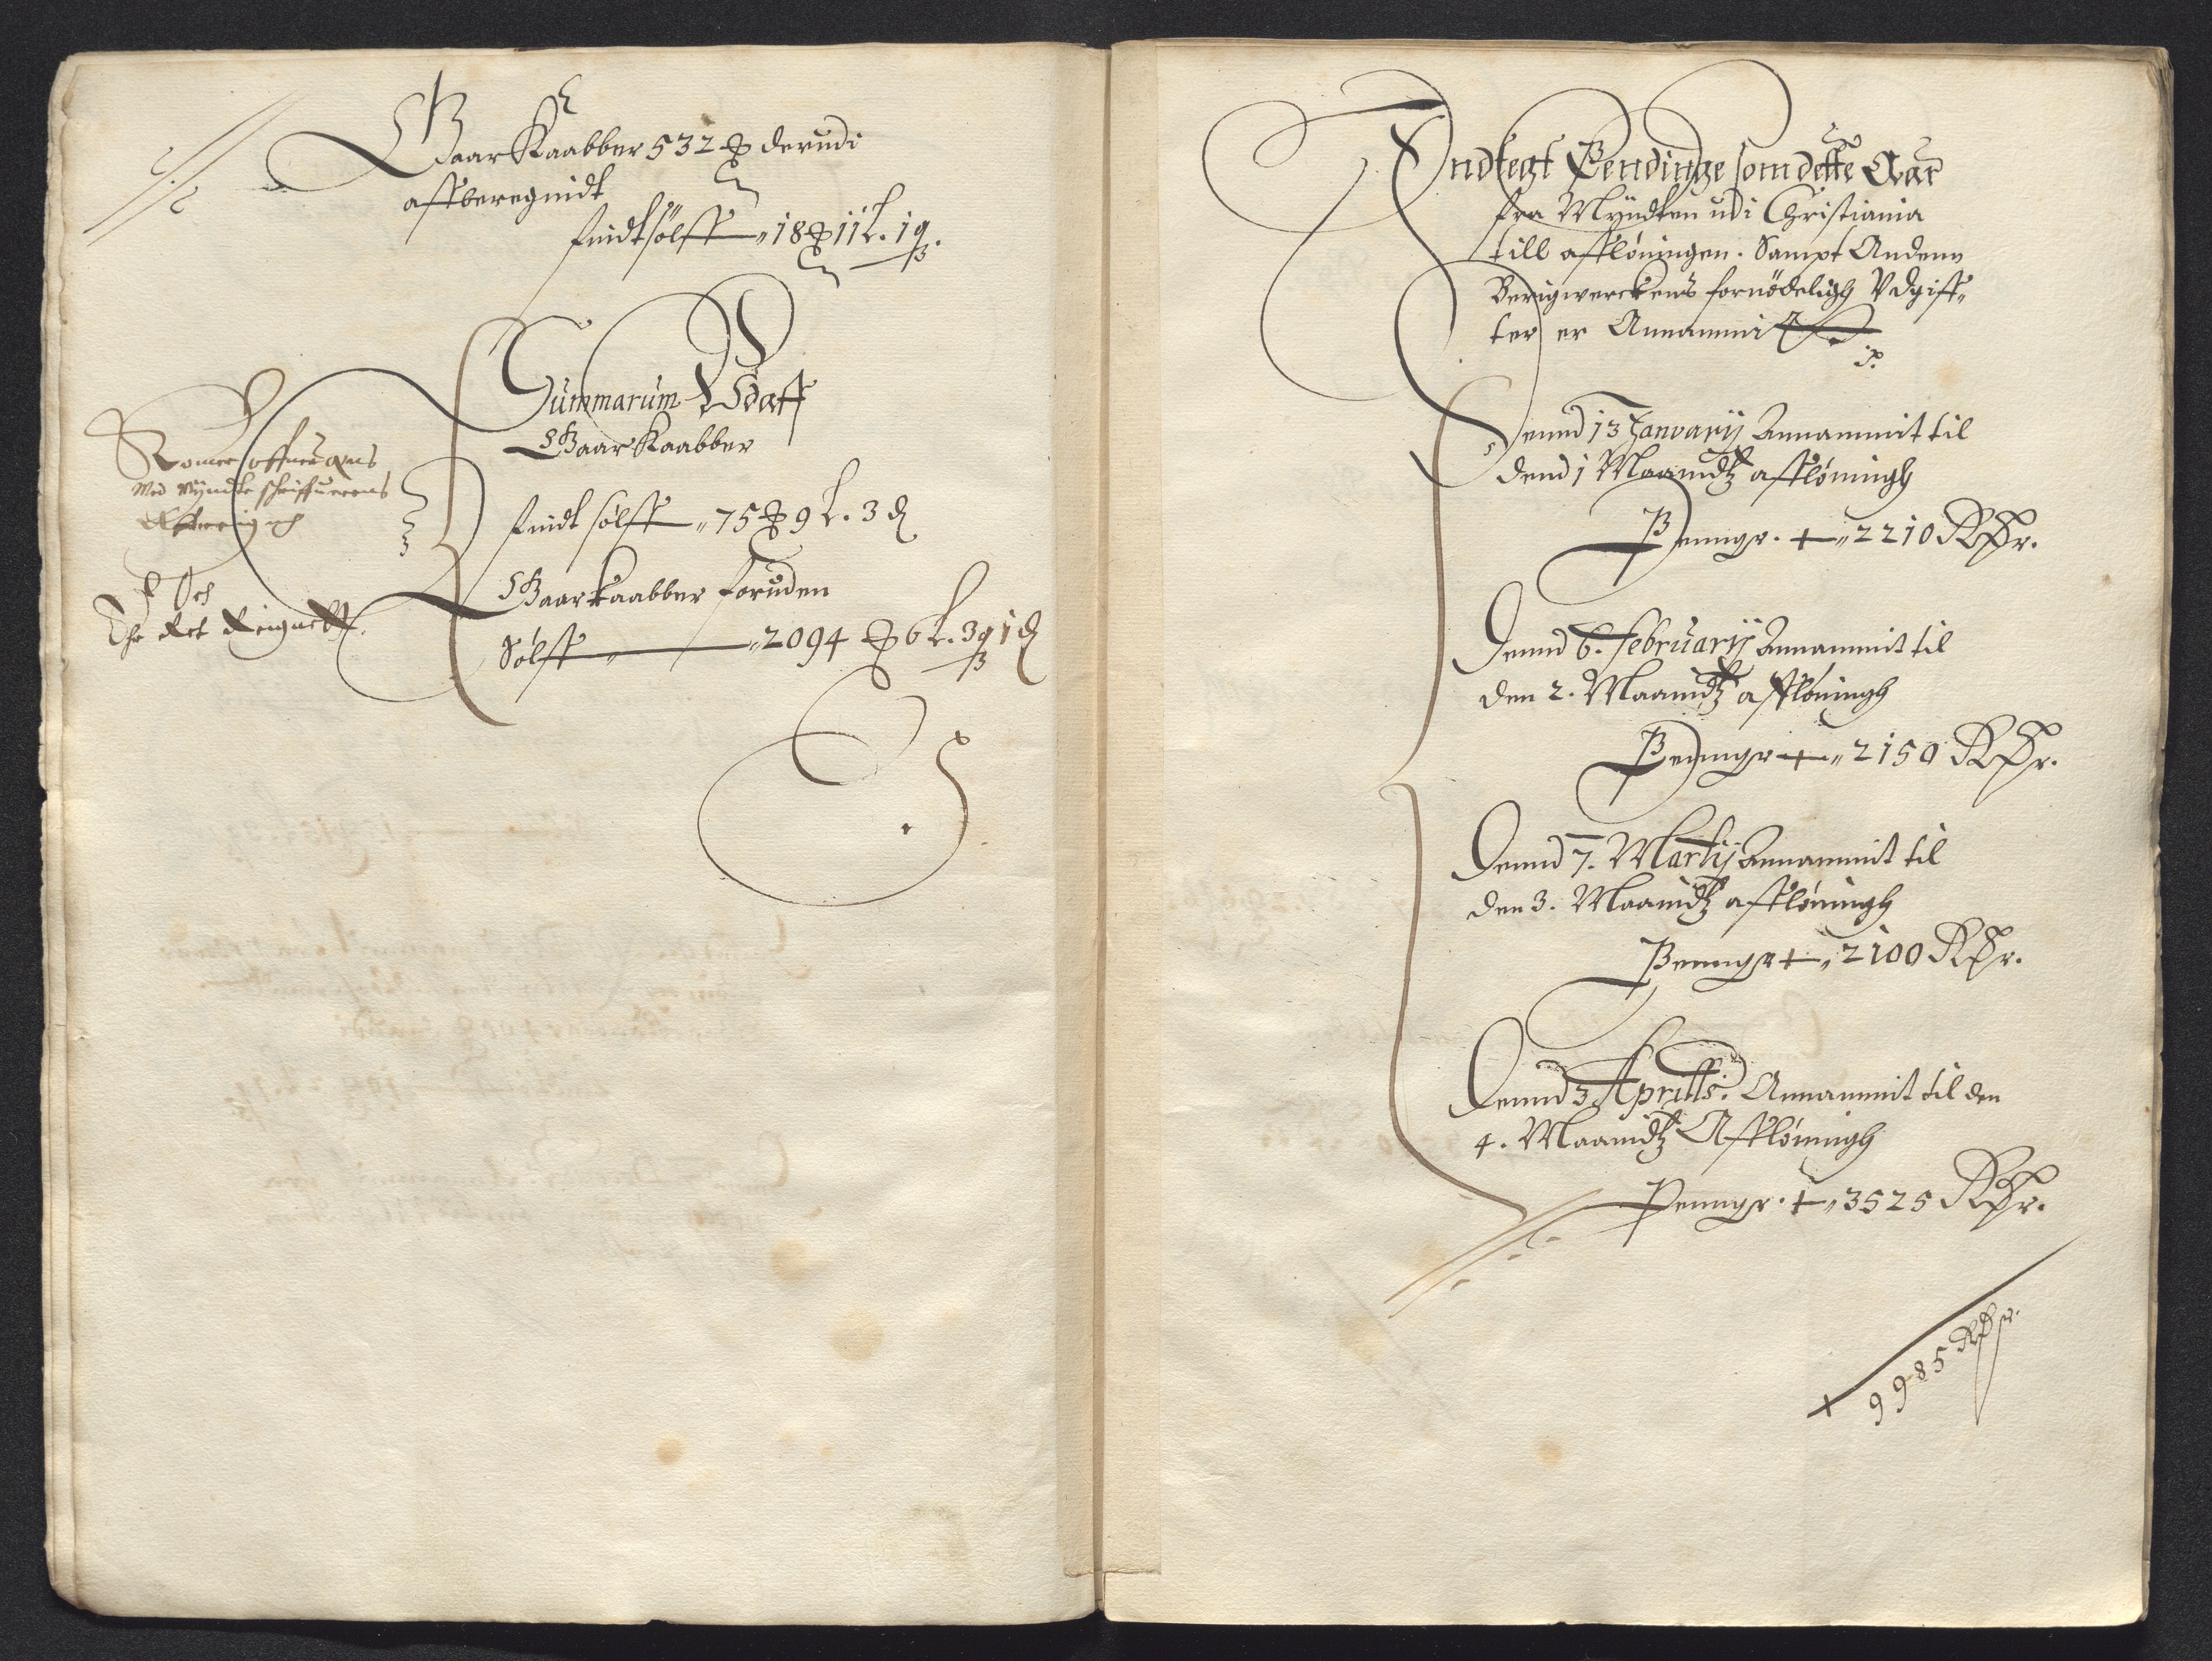 Gaar Kaabber 532 ℔ derudi
affberegnidt
findt sølff 18 ℔ 11 L. 1 q.
Summarum Udaff
Gaar Kaabber
findt sølff 75 ℔ 9 L. 3 ₰
Gaar kaabber foruden
Sølff 2094 ℔ 6 L. 3 q 1 ₰
Med Myndte schriffuerens
Och
Er Ret Reignett.
Indtegt Pendinge som dette Aar
fra Myndten udi Christiania
till afflöningen. Sampt Anden
Bergwerckens fornödeligh Vdgiff,,
ter er Annammit
Dennd 13 Januarij Annammit til
dend 1 Maanidtz afflöningh
Penngr. 2210 Rdr.
Dennd 6. februarij Annammit til
den 2. Maanidtz afflöningh
Penngr 2150 Rdr.
Dennd 7. Martij Annammit til
den 3. Maanidtz afflöningh
Penngr 2100 Rdr.
Dennd 3 Aprilis. Annammit til den
4. Maanidtz Afflöningh
Penngr. 3525 Rdr.
9985 Rdr.